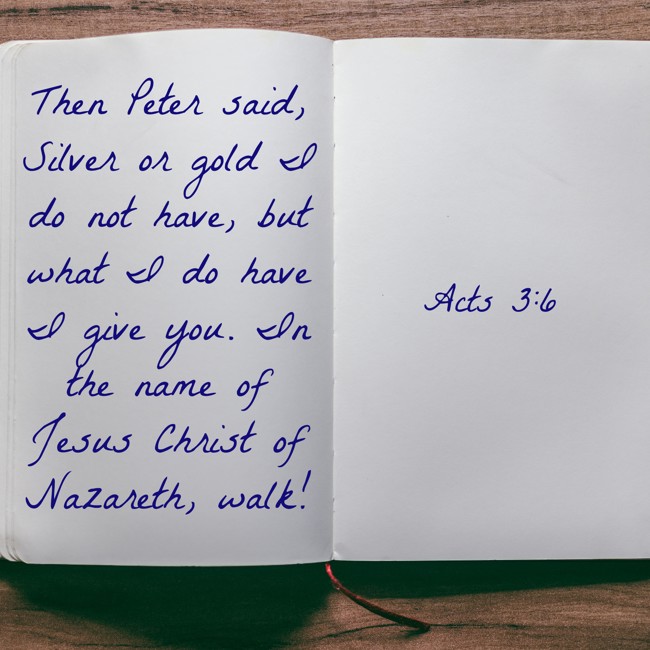 Then Peter said,
Silver or gold I
do not have, but
what I do have
I give you. In
the name of
Jesus Christ of
Nazareth, walk!
Acts 3:6